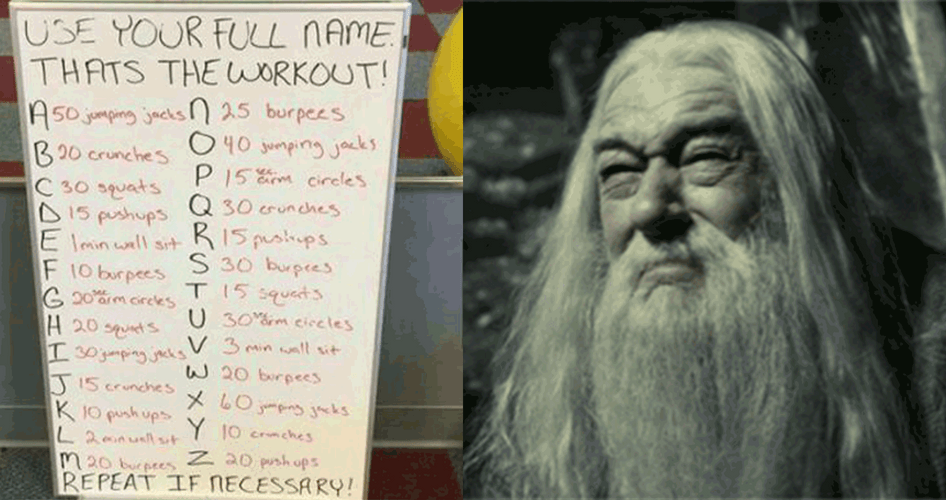 USE YOUR FULL NAME.
THATS THE WORKOUT!
A 50 jumping jacks
B 20 crunches
C 30 squats
D 15 pushups
E 1 min wall sit
F 10 burpees
G 20 sec arm circles
H 20 squats
I 30 jumping jacks
J 15 crunches
K 10 pushups
L 2 min wall sit
M 20 burpees
N 25 burpees
O 40 jumping jacks
P 15 sec arm circles
Q 30 crunches
R 15 pushups
S 30 burpees
T 15 squats
U 30 sec arm circles
V 3 min wall sit
W 20 burpees
X 60 jumping jacks
Y 10 crunches
Z 20 pushups
REPEAT IF NECESSARY!